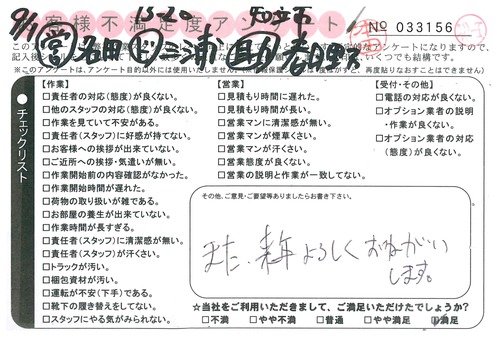 お客様不満足度アンケート
№ 033156
9/11
チェックリスト
【作業】
□責任者の対応(態度)が良くない。
□他のスタッフの対応(態度)が良くない。
□作業を見ていて不安がある。
□責任者(スタッフ)に好感が持てない。
□お客様への挨拶が出来ていない。
□ご近所への挨拶・気遣いが無い。
□作業開始前の内容確認がなかった。
□作業開始時間が遅れた。
□荷物の取り扱いが雑である。
□お部屋の養生が出来ていない。
□作業時間が長すぎる。
□責任者(スタッフ)に清潔感が無い。
□責任者(スタッフ)が汗くさい。
□トラックが汚い。
□梱包資材が汚い。
□運転が不安(下手)である。
□靴下の履き替えをしてない。
□スタッフにやる気がみられない。
【営業】
□見積もり時間に遅れた。
□見積もり時間が長い。
□営業マンに清潔感が無い。
□営業マンが煙草くさい。
□営業マンが汗くさい。
□営業態度が良くない。
□営業の説明と作業が一致してない。
【受付・その他】
□電話の対応が良くない。
□オプション業者の説明
・作業が良くない。
□オプション業者の対応
(態度)が良くない。
その他、ご意見・ご要望等ありましたらお書き下さい。
また、来年よろしくおねがい
します。
☆当社をご利用いただきまして、ご満足いただけたでしょうか?
□不満 □やや不満 □普通 □やや満足 □満足